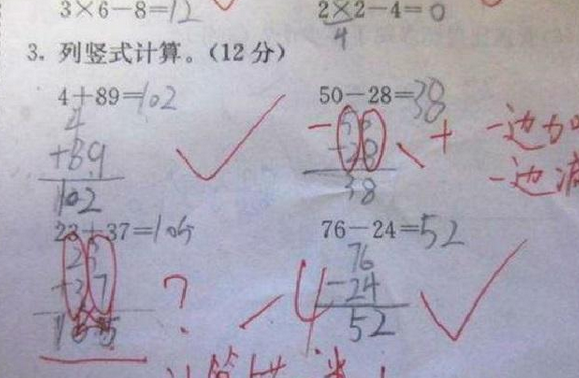 3×6－8=12
2×2－4=0
4
3. 列竖式计算。(12分)
4＋89=102
50－28=38
4
+89
102
－28
38
+
一边加
一边减
23＋37=105
76－24=52
23
+37
105
?
－4
76
－24
52
计算错